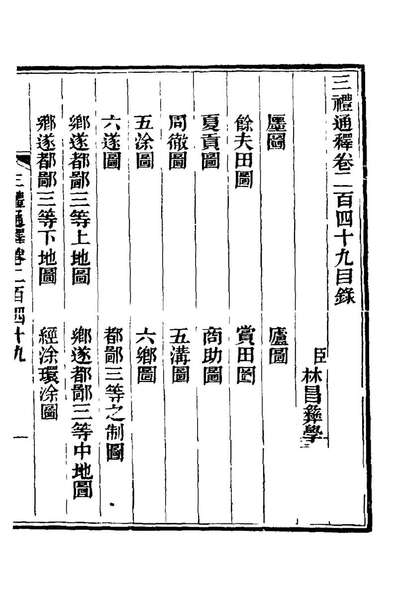 三禮通釋卷二百四十九目錄
臣林昌彝學
廛圖
廬圖
餘夫田圖
賞田圖
夏貢圖
商助圖
周徹圖
五溝圖
五涂圖
六鄉圖
六遂圖
都鄙三等之制圖
鄉遂都鄙三等上地圖
鄉遂都鄙三等中地圖
鄉遂都鄙三等下地圖
經涂環涂圖
三禮通釋卷二百四十九
一